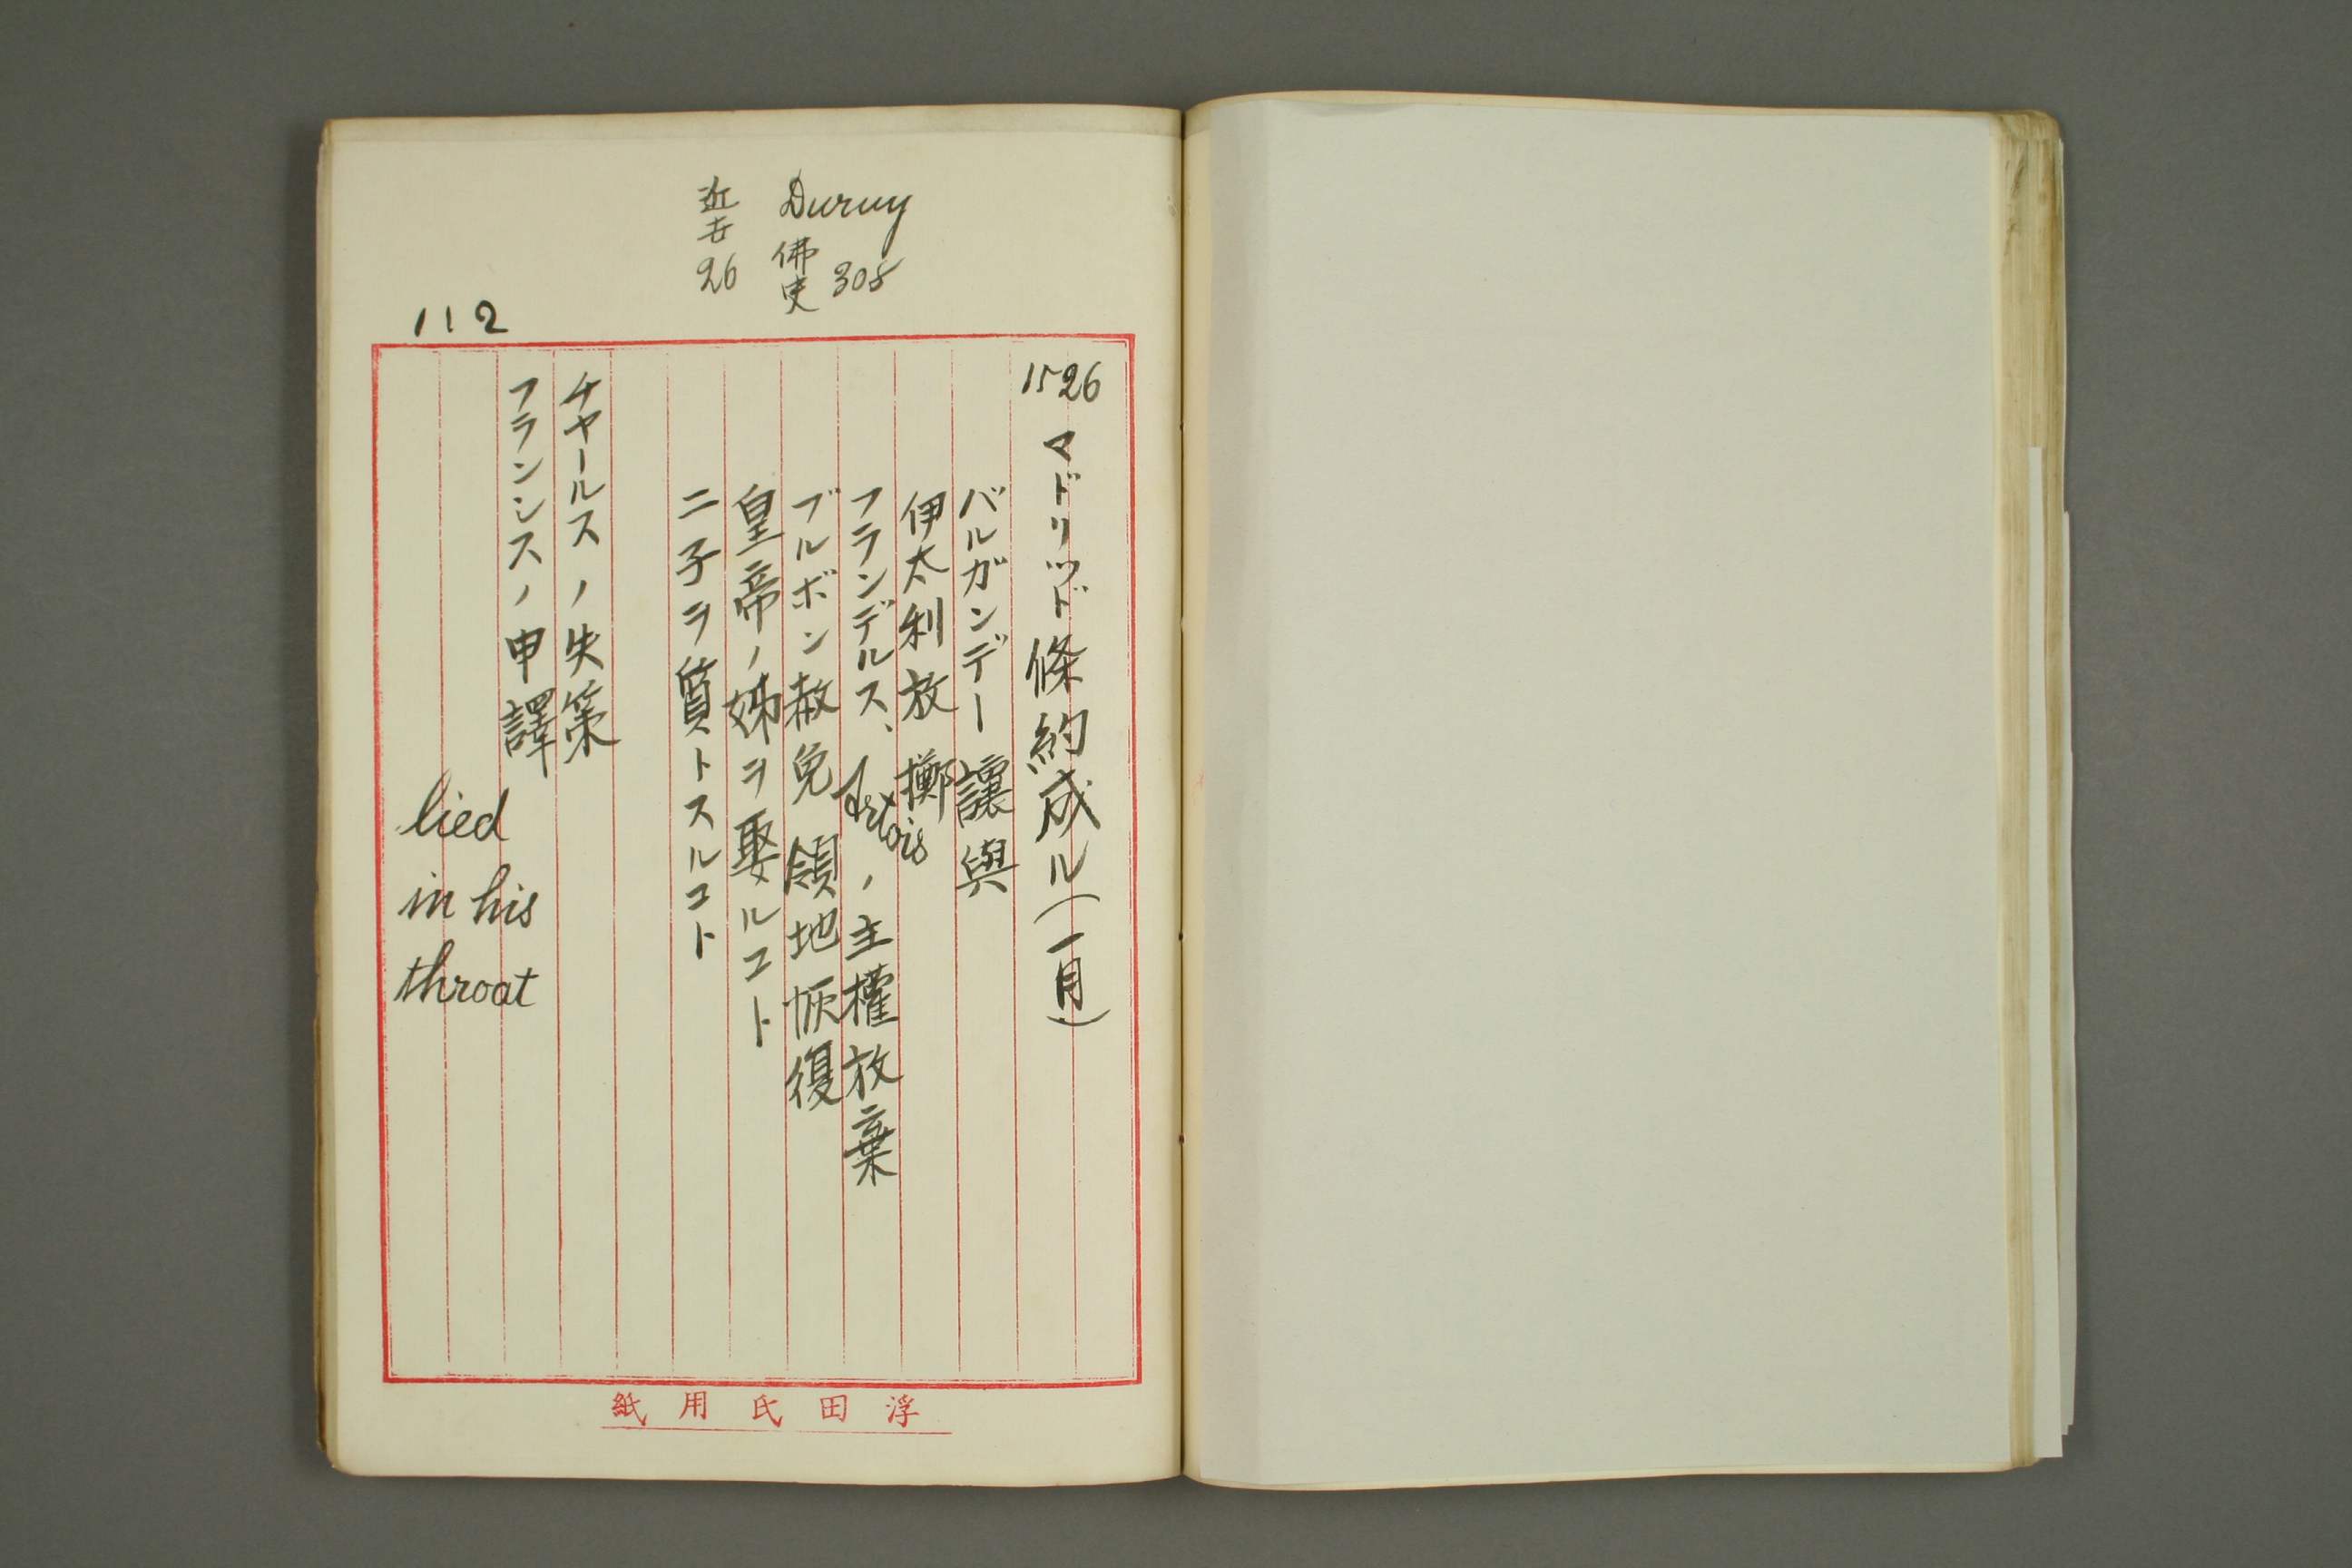 Duruy
佛史 308
近世 26
112
1526 マドリッド條約成ル(一月)
バルガンデー讓與
伊太利放擲
フランデルス、Artoisノ主權放棄
ブルボン赦免 領地恢復
皇帝ノ姊ヲ娶ルコト
二子ヲ質トスルコト
チヤールスノ失策
フランシスノ申譯
lied
in his
throat
紙用氏田浮